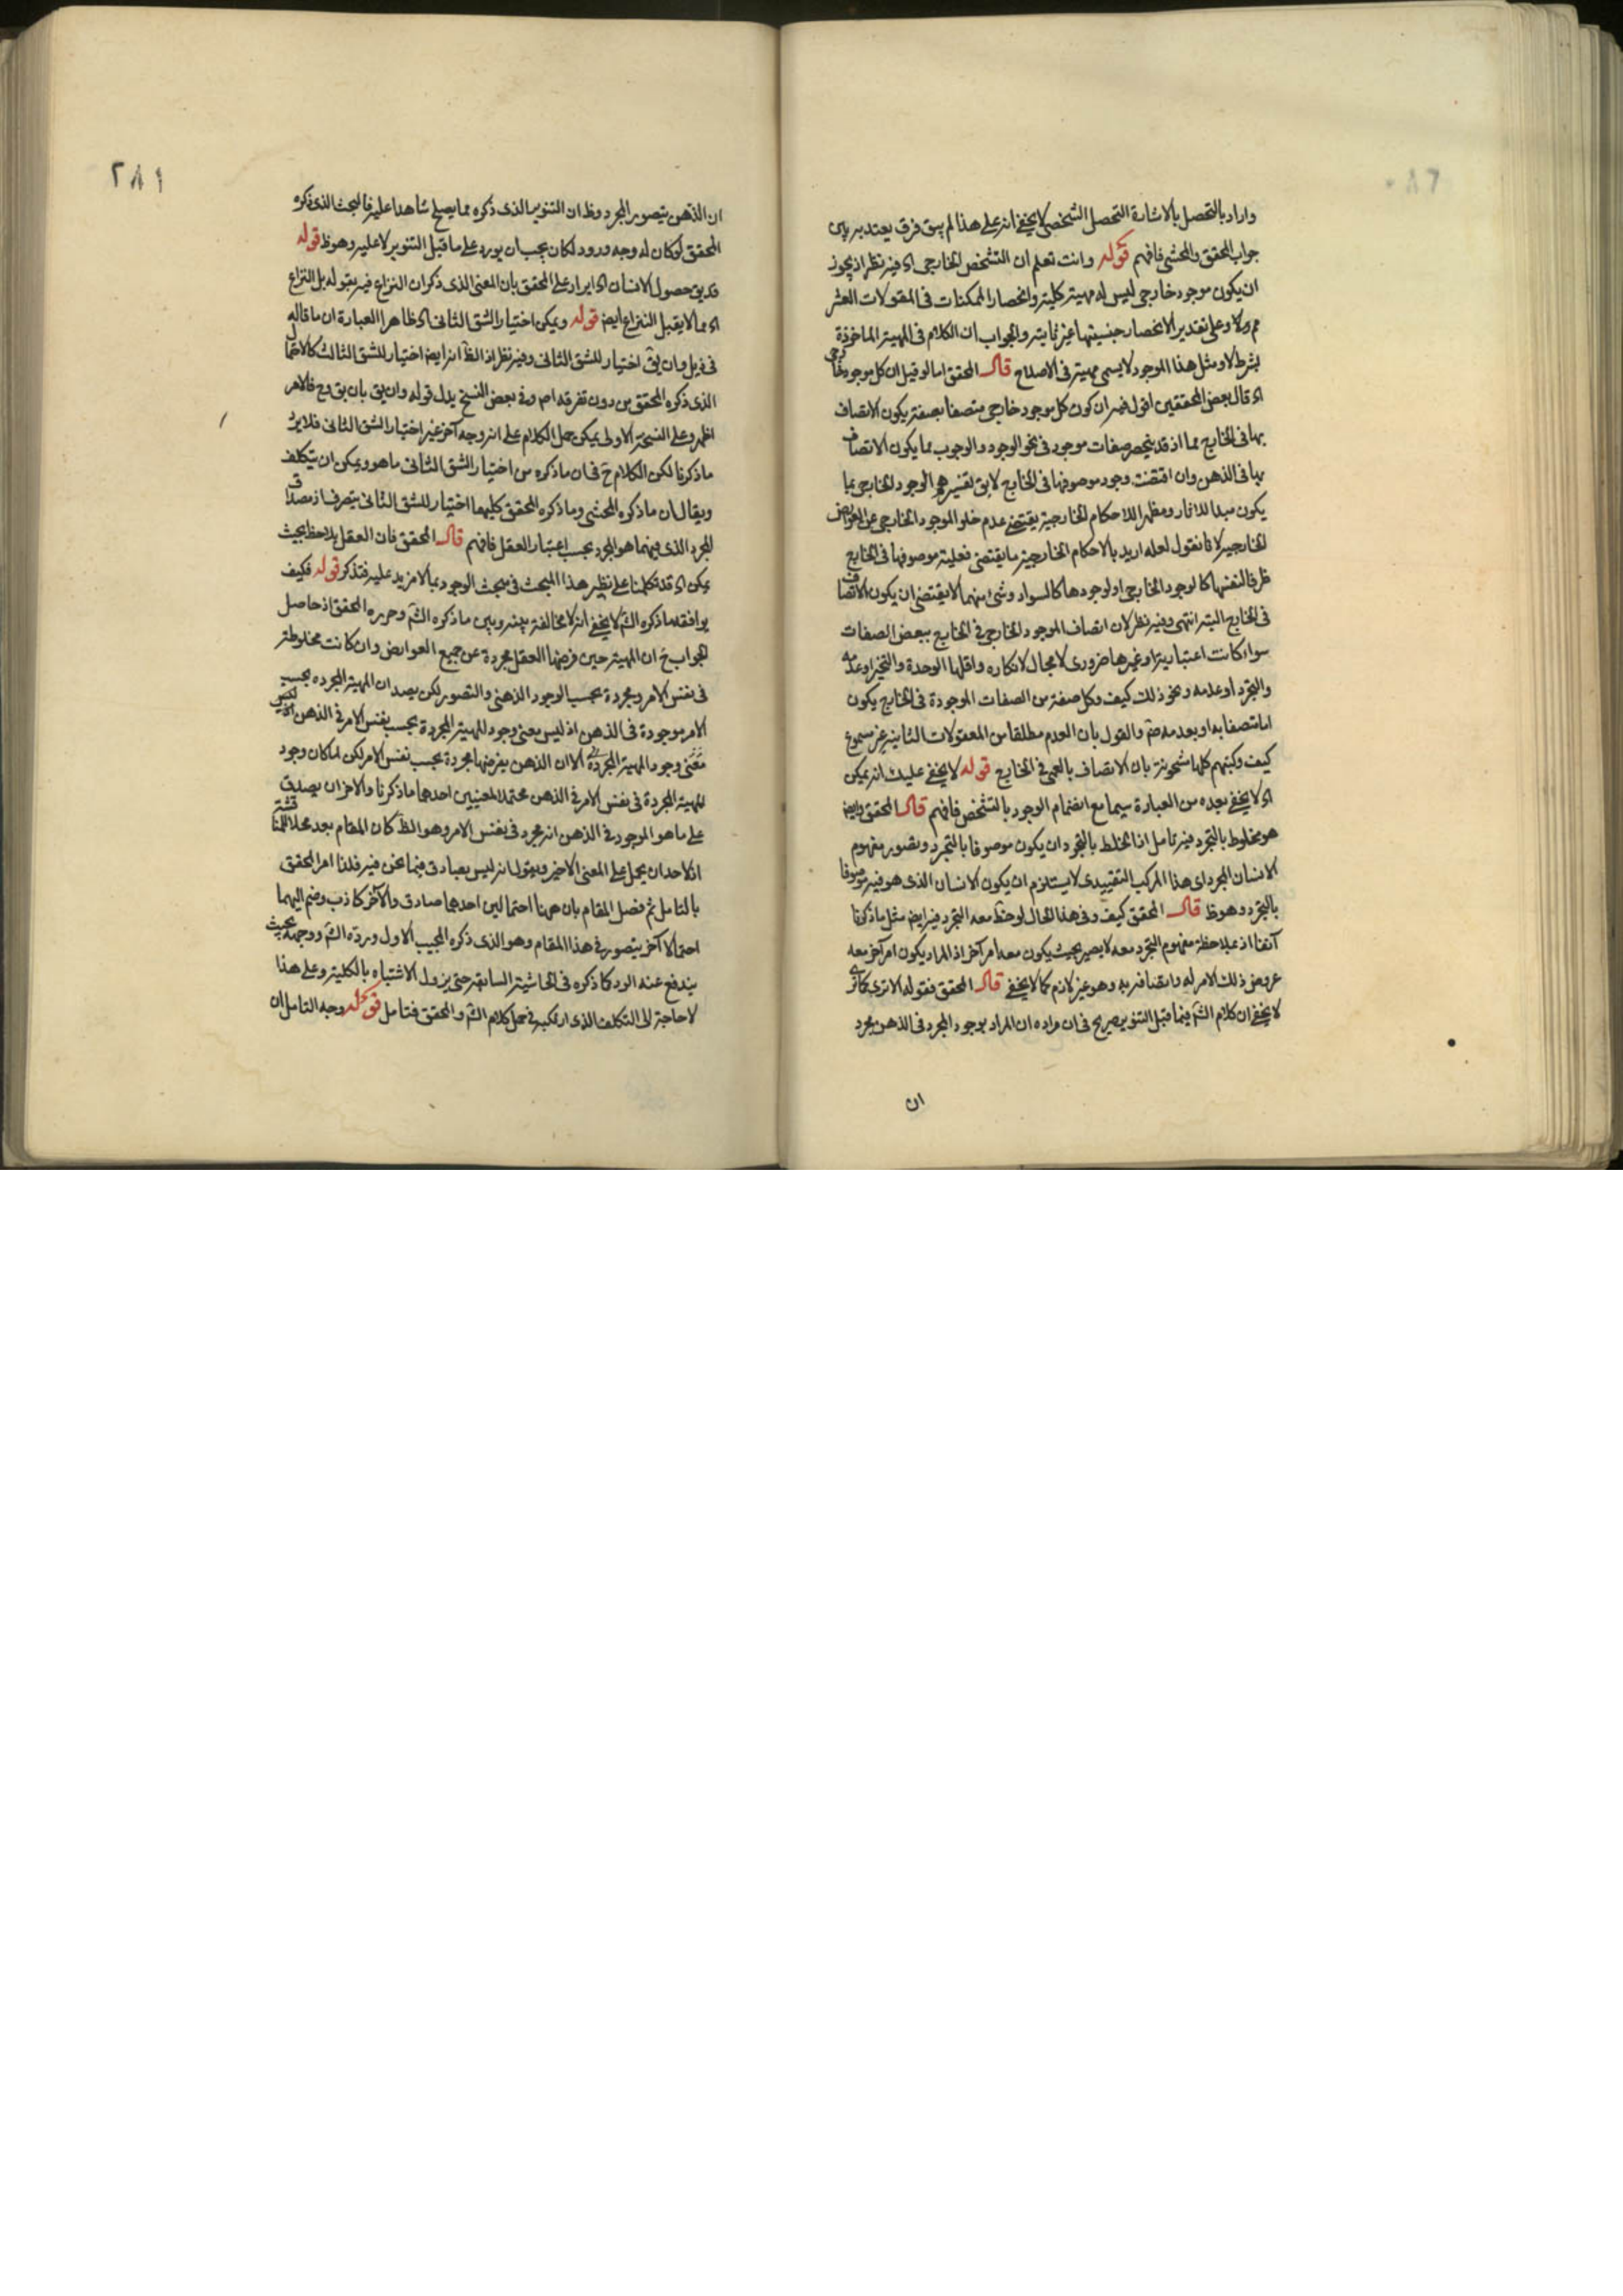 واراد بالتحصل بالاشارة التحصل الشخصى لا يخفى انه على هذا لم يبق فرق يعتد به بين
جواب المحقق والمحشى فافهم قوله وانت تعلم ان التشخص الخارجى اه فيه نظر اذ يجوز
ان يكون موجود خارجى ليس له مهية كلية وانحصار الممكنات فى المقولات العشر
مم ولا وعلى تقدير الانحصار جنسيتها غير ثابتة والجواب ان الكلام فى المهية الماخوذة
بشرط لا ومثل هذا الموجود لا يسمى مهية فى الاصطلاح قال المحقق اما لو قيل ان كل موجود خارجى
اه قال بعض المحققين اقول فيه ان كون كل موجود خارجى متصفا بصفة يكون الاتصاف
بها فى الخارج مما اذ قد ينحصر صفات موجود فى نحو الوجود والوجوب مما يكون الاتصاف
بها فى الذهن وان اقتضت وجود موصوفها فى الخارج لا يق تفسيرهم الوجود الخارجى بما
يكون مبدا للاثار ومظهرا للاحكام الخارجية يقتضى عدم خلو الموجود الخارجى عن العوارض
الخارجية لانا نقول لعله اريد بالاحكام الخارجية ما يقتضى فعلية موصوفها فى الخارج
ظرفا لنفسها كالوجود الخارجى او لوجودها كالسواد وشئ منهما لا يقتضى ان يكون الاتصاف
فى الخارج البتة انتهى وفيه نظر لان اتصاف الموجود الخارجى فى الخارج ببعض الصفات
سواء كانت اعتبارية او غيرها ضرورى لا مجال لانكاره واقلها الوحدة والتحيز او عدمه
والتجرد او عدمه ونحو ذلك كيف وكل صفة من الصفات الموجودة فى الخارج يكون
اما متصفا به او بعدمه ضم والقول بان العدم مطلقا من المعقولات الثانية غير مسموع
كيف وكتبهم كلها مشحونة بان الاتصاف بالعمى فى الخارج قوله لا يخفى عليك انه يمكن
اه لا يخفى بعده من العبارة سيما مع انضمام الوجود بالتشخص فافهم قال المحقق وايض
هو مخلوط بالتجرد فيه تامل اذ الخلط بالتجرد ان يكون موصوفا بالتجرد وتصور مفهوم
الانسان المجرد اى هذا المركب التقييدى لا يستلزم ان يكون الانسان الذى هو فيه موصوفا
بالتجرد وهو ظ قال المحقق كيف وفى هذا الحال لوحظ معه التجرد فيه ايض مثل ما ذكرنا
آنفا اذ بملاحظة مفهوم التجرد معه لا يصير بحيث يكون معه امر آخر اذ المراد بكون امر آخر معه
عروض ذلك الامر له واتصافه به وهو غير لازم كما لا يخفى قال المحقق فقوله الا ترى كانه
لا يخفى ان كلام الش فيما قبل التنوير صريح فى ان مراده ان المراد بوجود المجرد فى الذهن مجرد
ان
٢٨١
ان الذهن يتصور المجرد وظ ان التنوير الذى ذكره مما يصلح شاهدا عليه فالبحث الذى ذكره
المحقق لو كان له وجه ورود لكان يجب ان يورد على ما قبل التنوير لا عليه وهو ظ قوله
قد يق حصول الانسان اه ايراد على المحقق بان المعنى الذى ذكر ان النزاع فيه بقوله بل النزاع
اه مما لا يقبل النزاع ايض قوله ويمكن اختيار الشق الثانى اه ظاهر العبارة ان ما قاله
فى ذيل وان يق اختيار للشق الثانى وفيه نظر اذ الظ انه ايض اختيار للشق الثالث كالاحتمال
الذى ذكره المحقق من دون تفرقة اصم وفى بعض النسخ بدل قوله وان يق بان يق وح فالامر
اظهر وعلى النسخة الاولى يمكن حمل الكلام على انه وجه آخر غير اختيار الشق الثانى فلا يرد
ما ذكرنا لكن الكلام ح فى ان ما ذكره من اختيار الشق الثانى ما هو ويمكن ان يتكلف
ويقال ان ما ذكره المحشى وما ذكره المحقق كليهما اختيار للشق الثانى بتصرف اذ مصداق
المجرد الذى فيهما هو المجرد بحسب اعتبار العقل فافهم قال المحقق فان العقل يلاحظ بحيث
يمكن اه قد تكلمنا على نظير هذا المبحث فى مبحث الوجود بما لا مزيد عليه فتذكر قوله فكيف
يوافقه ما ذكره الش لا يخفى انه لا مخالفة بينه وبين ما ذكره الش وحرره المحقق اذ حاصل
الجواب ح ان المهية حين فرضها العقل مجردة عن جميع العوارض وان كانت مخلوطة
فى نفس الامر ومجردة بحسب الوجود الذهنى والتصور لكن يصد ان المهية المجردة بحسب نفس
الامر موجودة فى الذهن اذ ليس معنى وجود المهية المجردة بحسب نفس الامر فى الذهن
معنى وجود المهية المجردة الا ان الذهن يفرضها مجردة بحسب نفس الامر لكن لما كان وجود
المهية المجردة فى نفس الامر فى الذهن محتملا لمعنيين احدهما ما ذكرنا والاخر ان يصدق
على ما هو الموجود فى الذهن انه مجرد فى نفس الامر وهو الظ كان المقام بعد محلا للمناقشة
اذ لاحد ان يحمل على المعنى الاخير ويقول انه ليس بصادق فيما نحن فيه فلذا امر المحقق
بالتامل ثم فصل المقام بان ههنا احتمالين احدهما صادق والآخر كاذب وضم اليهما
احتمالا آخر يتصور فى هذا المقام وهو الذى ذكره المجيب الاول ورده الش ووجهه بحيث
يندفع عنه الورد كما ذكره فى الحاشية السابقة حتى يزول الاشتباه بالكلية وعلى هذا
لا حاجة الى التكلف الذى ارتكبه فى حمل كلام الش والمحقق فتامل قوله وجه التامل ان